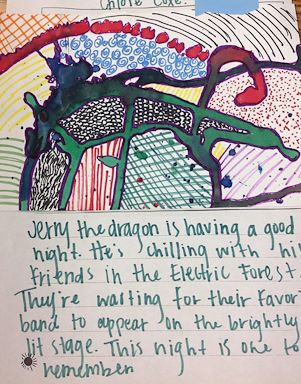 Chloe Coxe.
Jerry the dragon is having a good
night. He's chilling with hi
friends in the Electric Forest
They're waiting for their favor
band to appear on the brightly
lit stage. This night is one to
remember